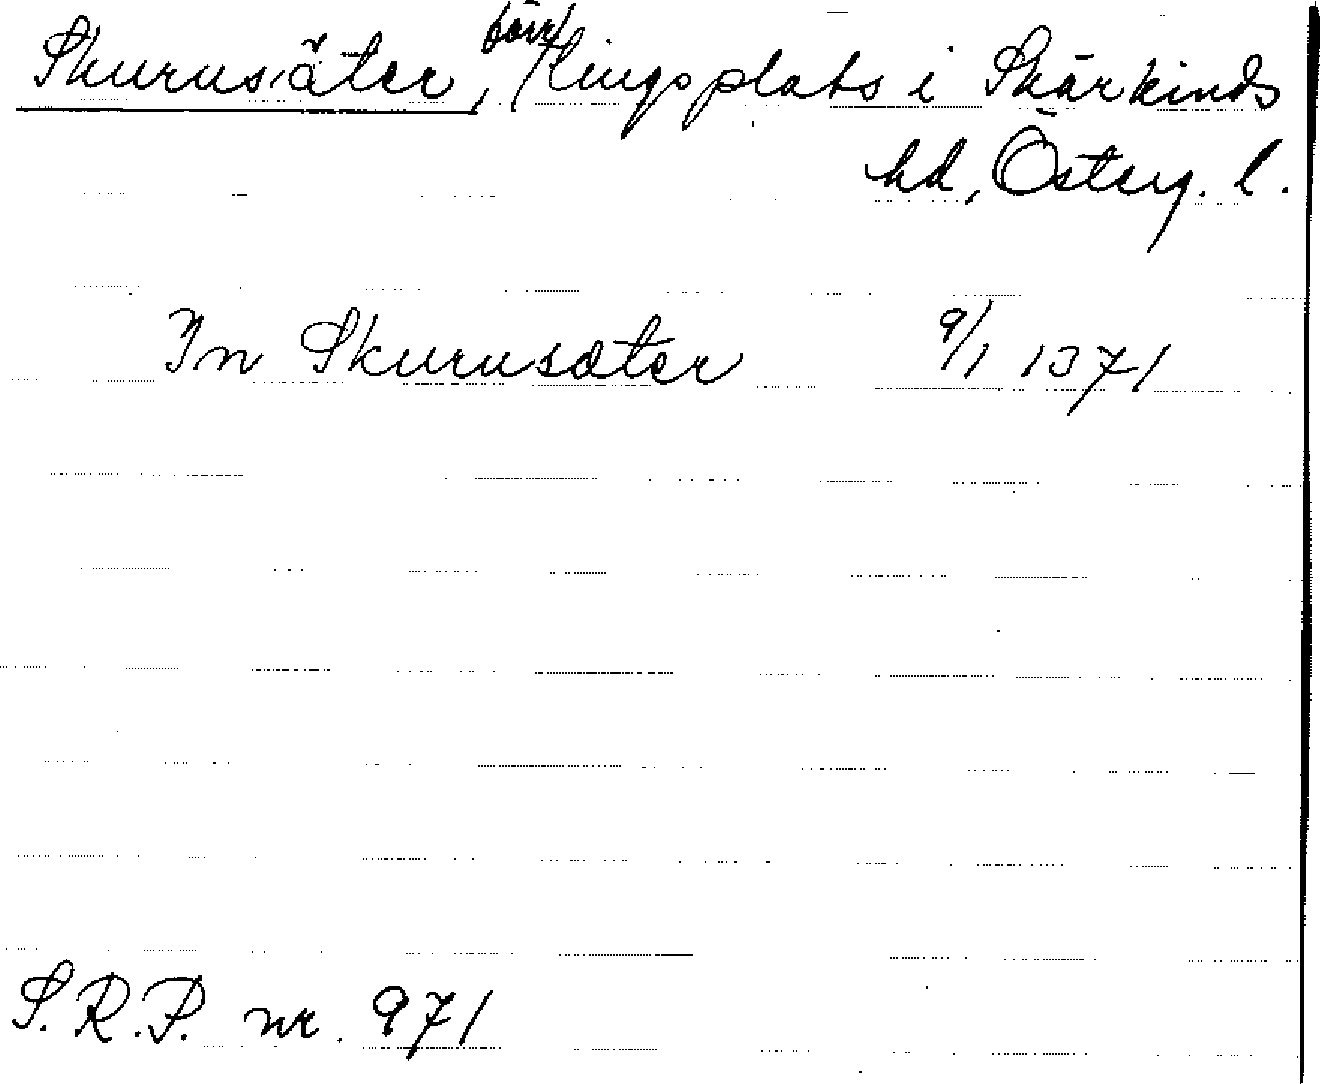 Skurusäter, förr tingsplats i Skärkinds
hd, Österg. l.
In Skurusæter 9/1 1371
S.R.P. nr. 971